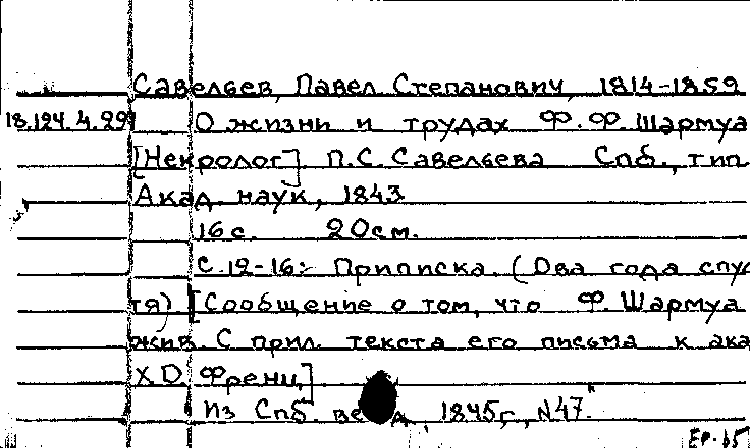 Савельев, Павел Степанович, 1814-1859
18.124.4.297 О жизни и трудах Ф.Ф. Шармуа
[Некролог] П.С. Савельева Спб., тип
Акад. наук, 1843
16 с. 20 см.
С. 12-16: Приписка. (Два года спус
тя) [Сообщение о том, что Ф. Шармуа
жив. С прил. текста его письма к ака
Х.D. Френц]
Из Спб. 1845 г., N47.